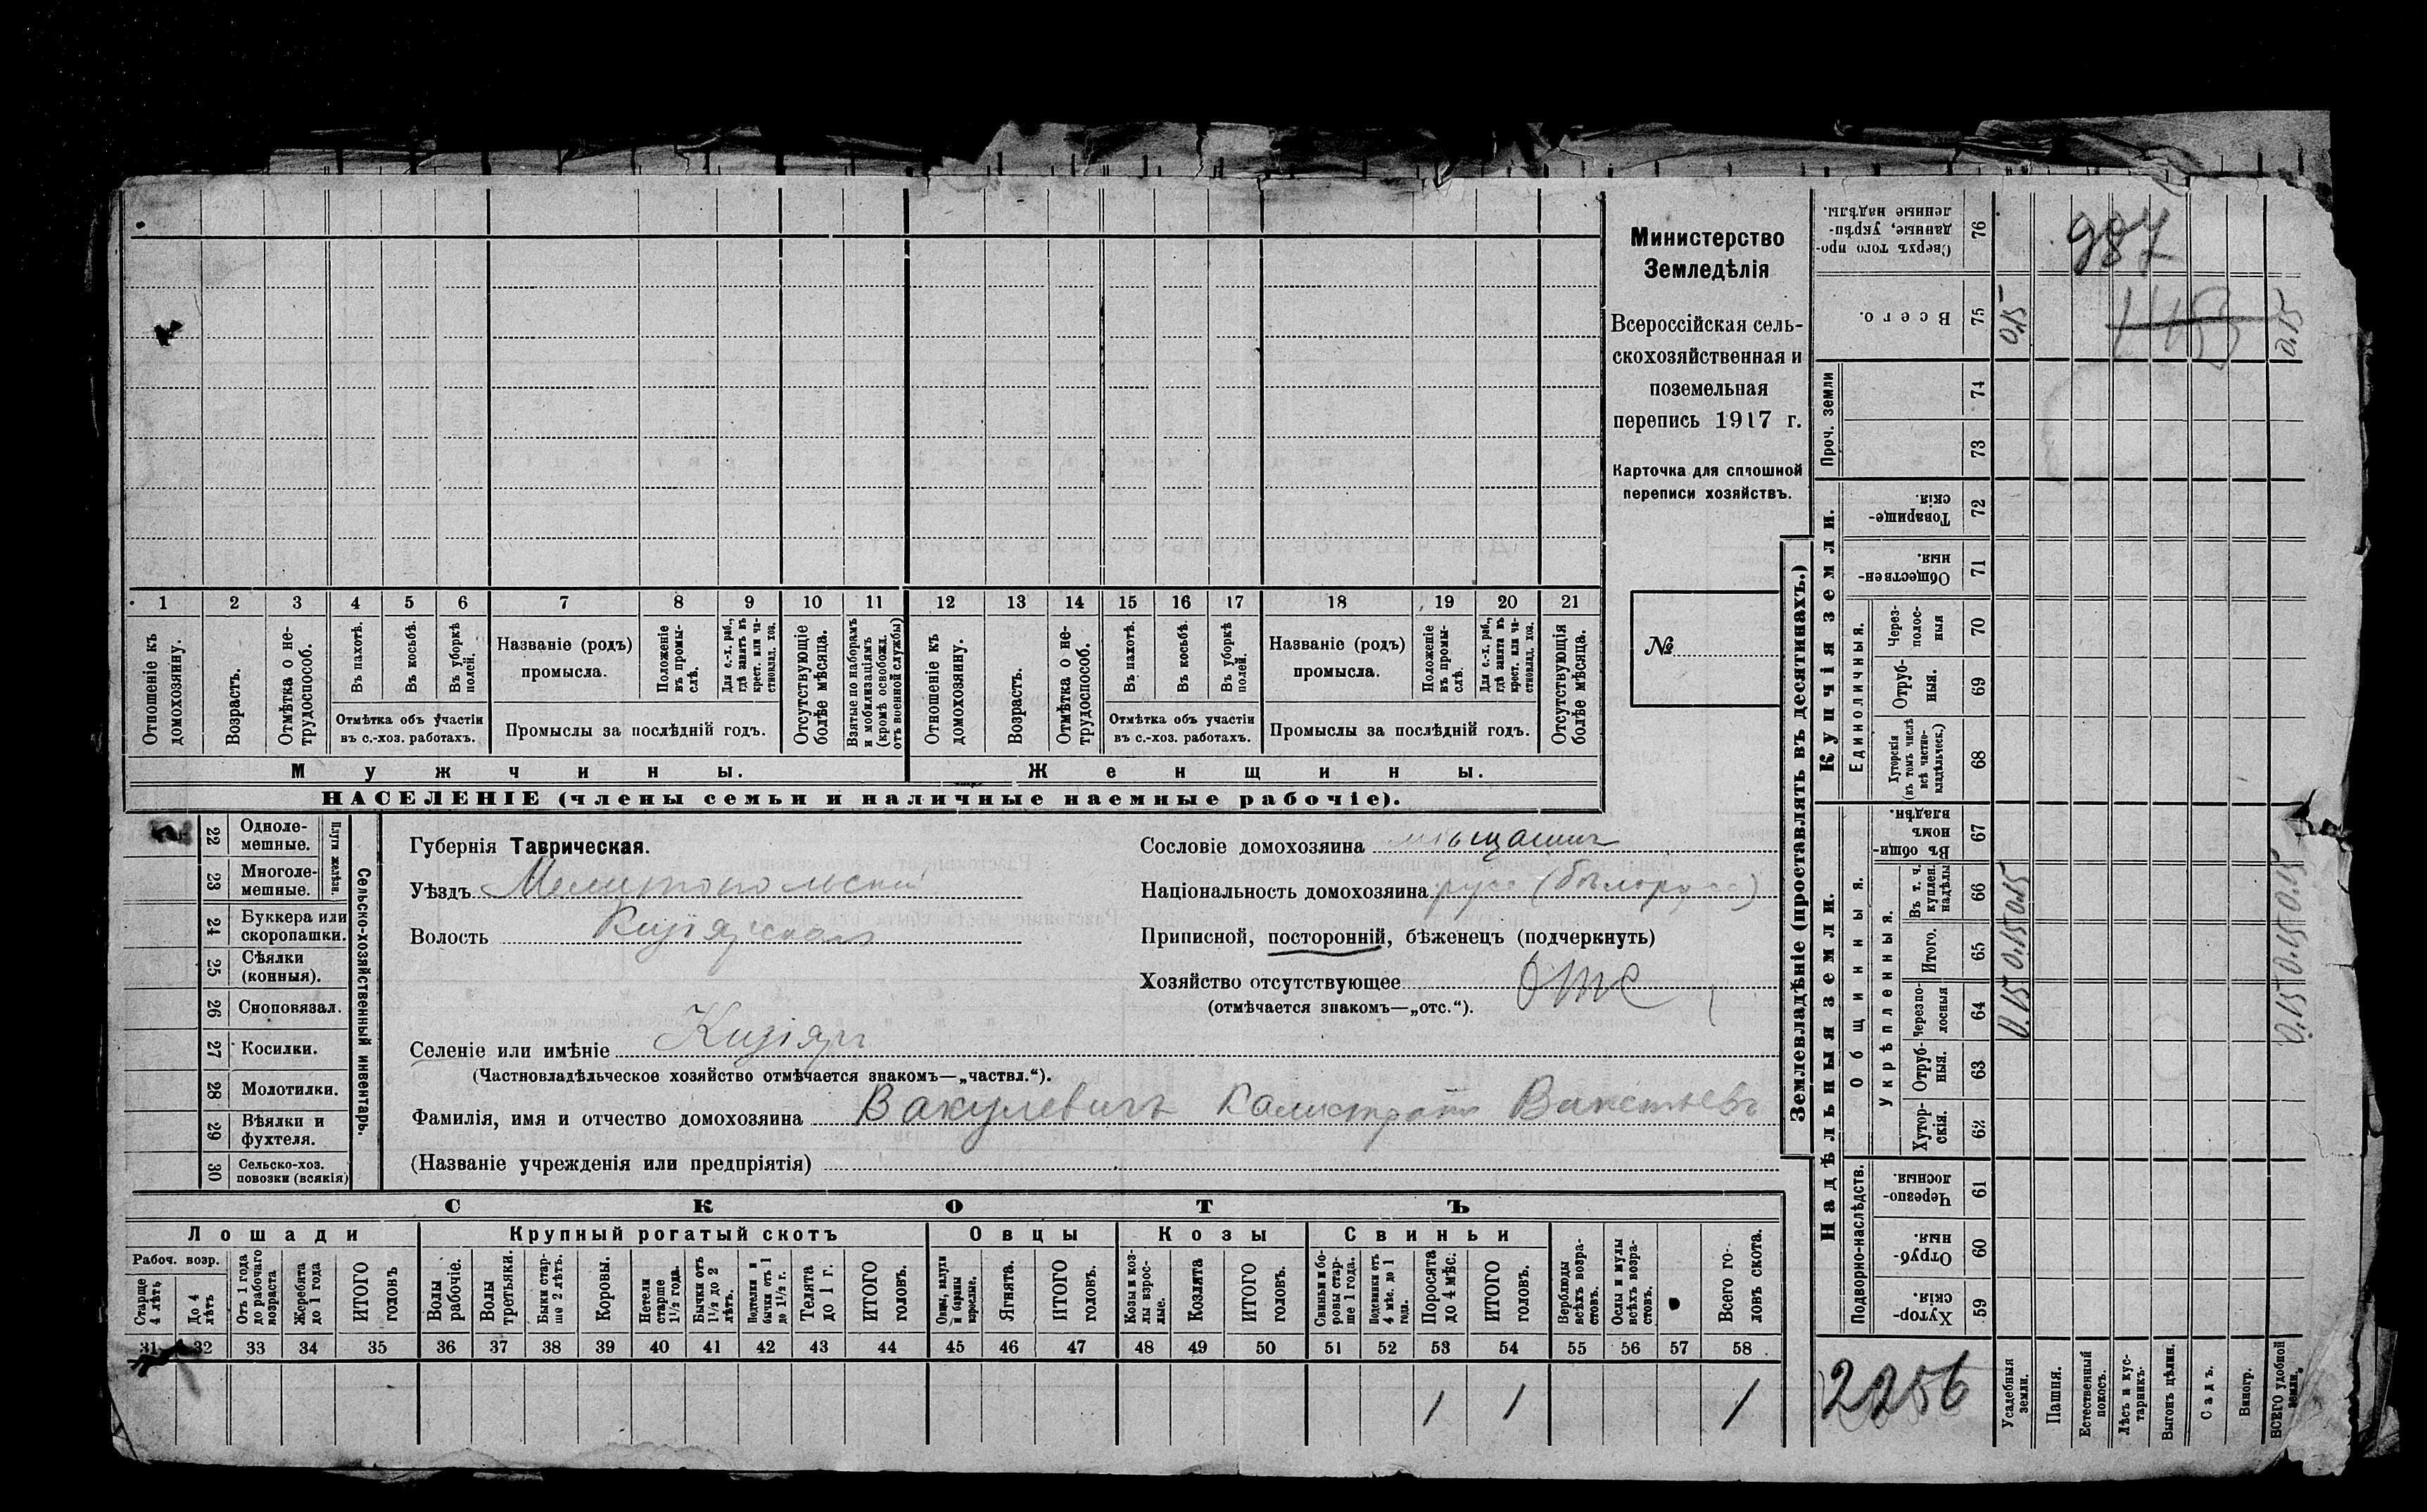 Министерство
Земледѣлія
Всероссійская сель-
скохозяйственная и
поземельная
перепись 1917 г.
Карточка для сплошной
переписи хозяйствъ.
№
1 2 3 4 5 6 7 8 9 10 11 12 13 14 15 16 17 18 19 20 21
Отношеніе къ домохозяину.
Возрастъ.
Отмѣтка о не-трудоспособ.
Въ пахотѣ.
Въ косьбѣ.
Въ уборкѣ полей.
Отмѣтка объ участіи
въ с.-хоз. работахъ.
Названіе (родъ)
промысла.
Положеніе въ промы-слѣ.
Для с.-х. раб., гдѣ занятъ въ крест. или ча-стновлад. хоз.
Промыслы за послѣдній годъ.
Отсутствующіе болѣе мѣсяца.
Взятые по наборамъ и мобилизаціямъ (кромѣ освобожд. отъ военной службы)
Отношеніе къ домохозяину.
Возрастъ.
Отмѣтка о не-трудоспособ.
Въ пахотѣ.
Въ косьбѣ.
Въ уборкѣ полей.
Отмѣтка объ участіи
въ с.-хоз. работахъ.
Названіе (родъ)
промысла.
Положеніе въ промы-слѣ.
Для с.-х. раб., гдѣ занята въ крест. или ча-стновлад. хоз.
Промыслы за послѣдній годъ.
Отсутствующія болѣе мѣсяца.
Мужчины.
Женщины.
НАСЕЛЕНІЕ (члены семьи и наличные наемные рабочіе).
22 Одноле-мешные.
23 Многоле-мешные.
Плуги желѣзн.
24 Буккера или скоропашки.
25 Сѣялки (конныя).
26 Сноповязал.
27 Косилки.
28 Молотилки.
29 Вѣялки и фухтеля.
30 Сельско-хоз. повозки (всякія)
Сельско-хозяйственный инвентарь.
Губернія Таврическая.
Уѣздъ Мелитопольскій
Волость Кизіярская
Селеніе или имѣніе Кизіяръ
(Частновладѣльческое хозяйство отмѣчается знакомъ—„частвл.“).
Фамилія, имя и отчество домохозяина Вакулевичъ Калистратъ
(Названіе учрежденія или предпріятія)
Сословіе домохозяина мѣщанинъ
Національность домохозяина русс (бѣлорусс)
Приписной, посторонній, бѣженецъ (подчеркнуть)
Хозяйство отсутствующее отс
(отмѣчается знакомъ—„отс.“).
СКОТЪ
Лошади
Крупный рогатый скотъ
Овцы
Козы
Свиньи
Рабоч. возр.
Старше 4 лѣтъ
До 4 лѣтъ
Отъ 1 года до рабочаго возраста
Жеребята до 1 года
ИТОГО головъ
Волы рабочіе.
Волы третьяки.
Быки стар-ше 2 лѣтъ.
Коровы.
Нетели старше 1½ года.
Бычки отъ 1½ до 2 лѣтъ.
Подтелки и бычки отъ 1 до 1½ г.
Телята до 1 г.
ИТОГО головъ.
Овцы, валухи и бараны взрослые.
Ягнята.
ИТОГО головъ.
Козы и коз-лы взрос-лые.
Козлята
ИТОГО головъ.
Свиньи и бо-ровы стар-ше 1 года.
Подсвинки отъ 4 мѣс. до 1 года.
Поросята до 4 мѣс.
ИТОГО головъ.
Верблюды всѣхъ возра-стовъ.
Ослы и мулы всѣхъ возра-стовъ.
Всего го-ловъ скота.
31 32 33 34 35 36 37 38 39 40 41 42 43 44 45 46 47 48 49 50 51 52 53 54 55 56 57 58
1 1 1
Землевладѣніе (проставлять въ десятинахъ.)
Надѣльныя земли.
Купчія земли.
Проч. земли
Подворно-наслѣдств.
Общинныя.
Укрѣпленныя.
Единоличныя.
76 Сверхъ того про-данные, укрѣп-ленные надѣлы.
75 Всего.
74
73
72 Товарище-скія.
71 Обществен-ныя.
70 Через-полос-ныя
69 Отруб-ныя.
68 Хуторскія (въ томъ числѣ всѣ частно-владѣльческ.)
67 Въ общи-номъ владѣн.
66 Въ т. ч. куплен. надѣлы
65 Итого.
64 Черезпо-лосныя
63 Отруб-ныя.
62 Хутор-скія.
61 Черезпо-лосныя.
60 Отруб-ныя.
59 Хутор-скія.
Усадебныя земли.
Пашня.
Естественный покосъ.
Лѣсъ и кус-тарникъ.
Выгонъ цѣлин.
Садъ.
Виногр.
ВСЕГО удобной земли.
987
0.15 0.15
0.15 0.15 0.15
0.15 0.15 0.15
2256